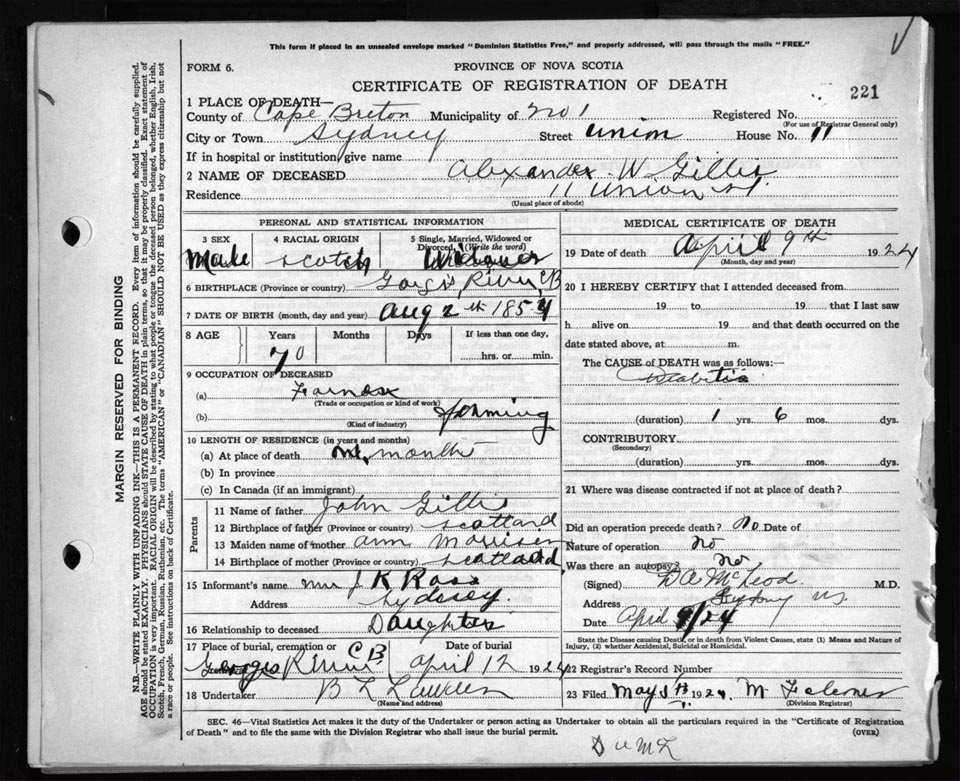 This form if placed in an unsealed envelope marked "Dominion Statistics Free," and properly addressed, will pass through the mails "FREE."
FORM 6.
PROVINCE OF NOVA SCOTIA
CERTIFICATE OF REGISTRATION OF DEATH
221
1 PLACE OF DEATH—
County of Cape Breton Municipality of No 1 Registered No.
(For use of Registrar General only)
City or Town Sydney Street Union House No. 11
If in hospital or institution, give name
2 NAME OF DECEASED Alexander W Gillis
Residence 11 Union St.
(Usual place of abode)
PERSONAL AND STATISTICAL INFORMATION
3 SEX 4 RACIAL ORIGIN 5 Single, Married, Widowed or Divorced, (Write the word)
Male Scotch Widower
6 BIRTHPLACE (Province or country) River, CB
7 DATE OF BIRTH (month, day and year) Aug 2nd 1854
8 AGE Years Months Days If less than one day,
70 hrs. or min.
9 OCCUPATION OF DECEASED
(a) Farmer
(Trade or occupation or kind of work)
(b) farming
(Kind of industry)
10 LENGTH OF RESIDENCE (in years and months)
(a) At place of death month
(b) In province
(c) In Canada (if an immigrant)
Parents
11 Name of father John Gillis
12 Birthplace of father (Province or country) Scotland
13 Maiden name of mother Ann Morrison
14 Birthplace of mother (Province or country) Scotland
15 Informant's name Mrs J K Ross
Address Sydney.
16 Relationship to deceased Daughter
17 Place of burial, cremation or Date of burial
Georges River CB April 12 1924
18 Undertaker B L
(Name and address)
MEDICAL CERTIFICATE OF DEATH
19 Date of death April 9th 1924
(Month, day and year)
20 I HEREBY CERTIFY that I attended deceased from
19 to 19 that I last saw
h alive on 19 and that death occurred on the
date stated above, at m.
The CAUSE of DEATH was as follows:—
Diabetis
(duration) 1 yrs. 6 mos. dys.
CONTRIBUTORY
(Secondary)
(duration) yrs. mos. dys.
21 Where was disease contracted if not at place of death?
Did an operation precede death? No Date of
Nature of operation no
Was there an autopsy? No
(Signed) D A McLeod M.D.
Address Sydney NS
Date April 9/24
State the Disease causing Death, or in death from Violent Causes, state (1) Means and Nature of Injury, (2) whether Accidental, Suicidal or Homicidal.
22 Registrar's Record Number
23 Filed May 1924 M
(Division Registrar)
SEC. 46—Vital Statistics Act makes it the duty of the Undertaker or person acting as Undertaker to obtain all the particulars required in the "Certificate of Registration
of Death" and to file the same with the Division Registrar who shall issue the burial permit.
(OVER)
D a McL
MARGIN RESERVED FOR BINDING
N.B.—WRITE PLAINLY WITH UNFADING INK—THIS IS A PERMANENT RECORD. Every item of information should be carefully supplied.
AGE should be stated EXACTLY. PHYSICIANS should STATE CAUSE OF DEATH in plain terms, so that it may be properly classified. Exact statement of
OCCUPATION is very important. RACIAL ORIGIN will be described by stating to what people or tongue the deceased person belonged, whether English, Irish,
Scotch, French, German, Russian, Ruthenian, etc. The terms "AMERICAN" or "CANADIAN" SHOULD NOT BE USED as they express citizenship but not
a race or people. See instructions on back of Certificate.